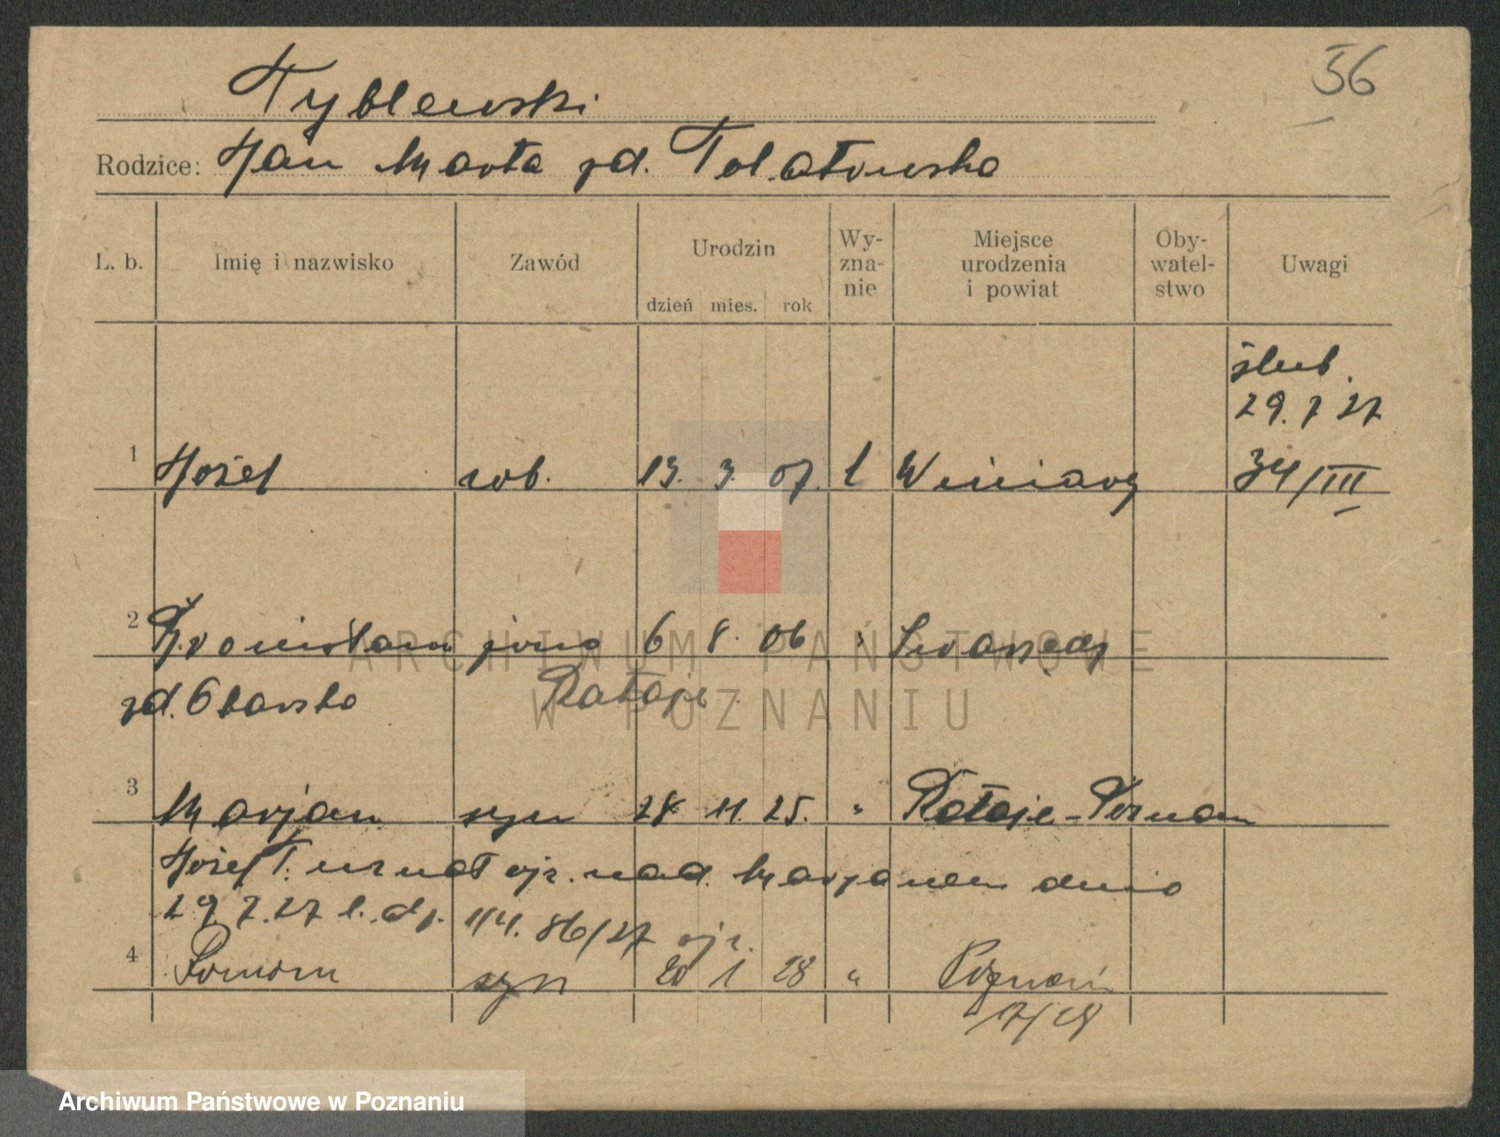 56
Tyblewski
Rodzice: Jan Marta zd.
L. b. Imię i nazwisko Zawód Urodzin dzień mies. rok Wy- zna- nie Miejsce urodzenia i powiat Oby- watel- stwo Uwagi
ślub.
29.7 27
1 Józef rob. 13. 3. 07. Winiary 34/III
2 Bronisława żona 6 8. 06 " Swarzędz
zd. Rataje
3 Marjan syn 28. 11. 25. " Rataje-Poznań
Józef T. uznał ojc. nad. Marjanem dnia
29.7.27 l. dz. 114.86/27 ojc.
4 Roman syn 20 1 28 " Poznań
17/28
ARCHIWUM PAŃSTWOWE
W POZNANIU
Archiwum Państwowe w Poznaniu